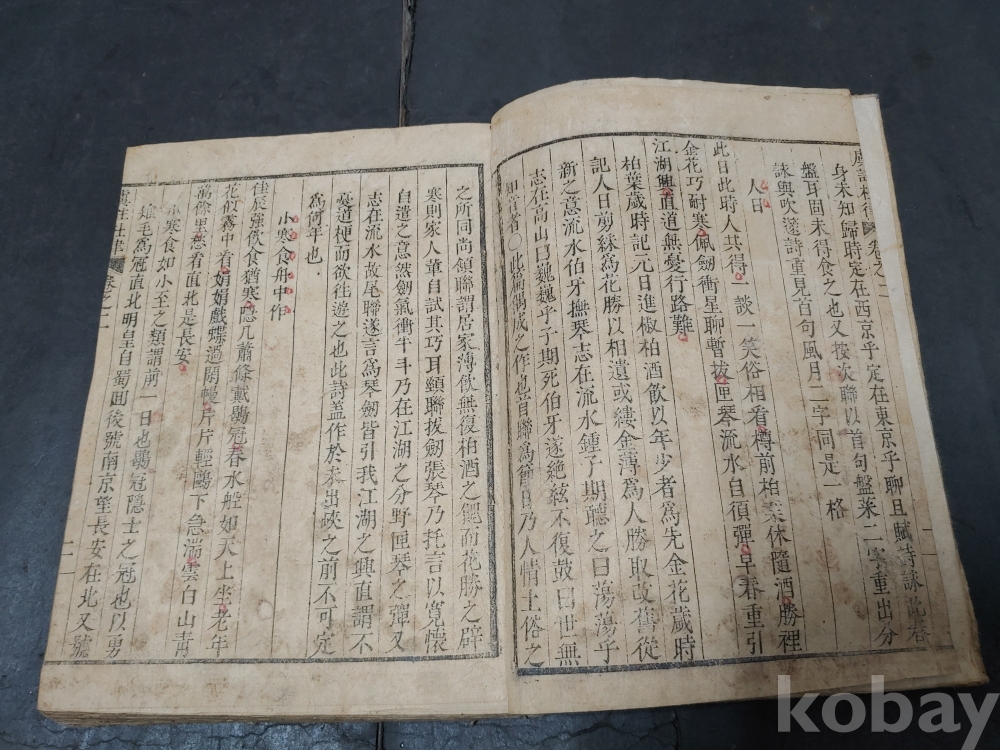 虞註杜律 卷之二
身未知歸時定在西京乎定在東京乎聊且賦詩詠
盤耳固未得食之也又按次聯以首句盤菜二字重出分
詠與吹篴詩重見首句風月二字同是一格
人日
此日此時人共得一談一笑俗相看樽前柏葉休隨酒勝裡
金花巧耐寒佩劒衝星聊暫拔匣琴流水自須彈早春重引
江湖興直道無憂行路難
柏葉歲時記元日進椒柏酒飮以年少者爲先金花歲時
記人日剪綵爲花勝以相遺或縷金薄爲人勝取改舊從
新之意流水伯牙撫琴志在流水鍾子期聽之曰蕩蕩乎
志在高山曰巍巍乎子期死伯牙遂絶絃不復鼓曰世無
知音者○此篇偶成之作也首聯爲節日乃人情土俗之
之所同尙頷聯謂居家薄飮無復柏酒之
而花勝之辟
寒則家人輩自試其巧耳頸聯拔劒張琴乃托言以寬懷
自遣之意然劒氣衝牛斗乃在江湖之分野匣琴之彈又
志在流水故尾聯遂言爲琴劒皆引我江湖之興直謂不
憂道梗而欲往遊之也此詩盖作於未出峽之前不可定
爲何年也
小寒食舟中作
佳辰強飮食猶寒隱几蕭條戴鶡冠春水船如天上坐老年
花似霧中看娟娟戲蝶過閑幔片片輕鷗下急湍雲白山靑
萬餘里愁看直北是長安
小寒食如小至之類謂前一日也鶡冠隱士之冠也以勇
雉毛爲冠直北明皇自蜀囬後號南京望長安在北又號
虞註杜律 卷之二
二
kobay